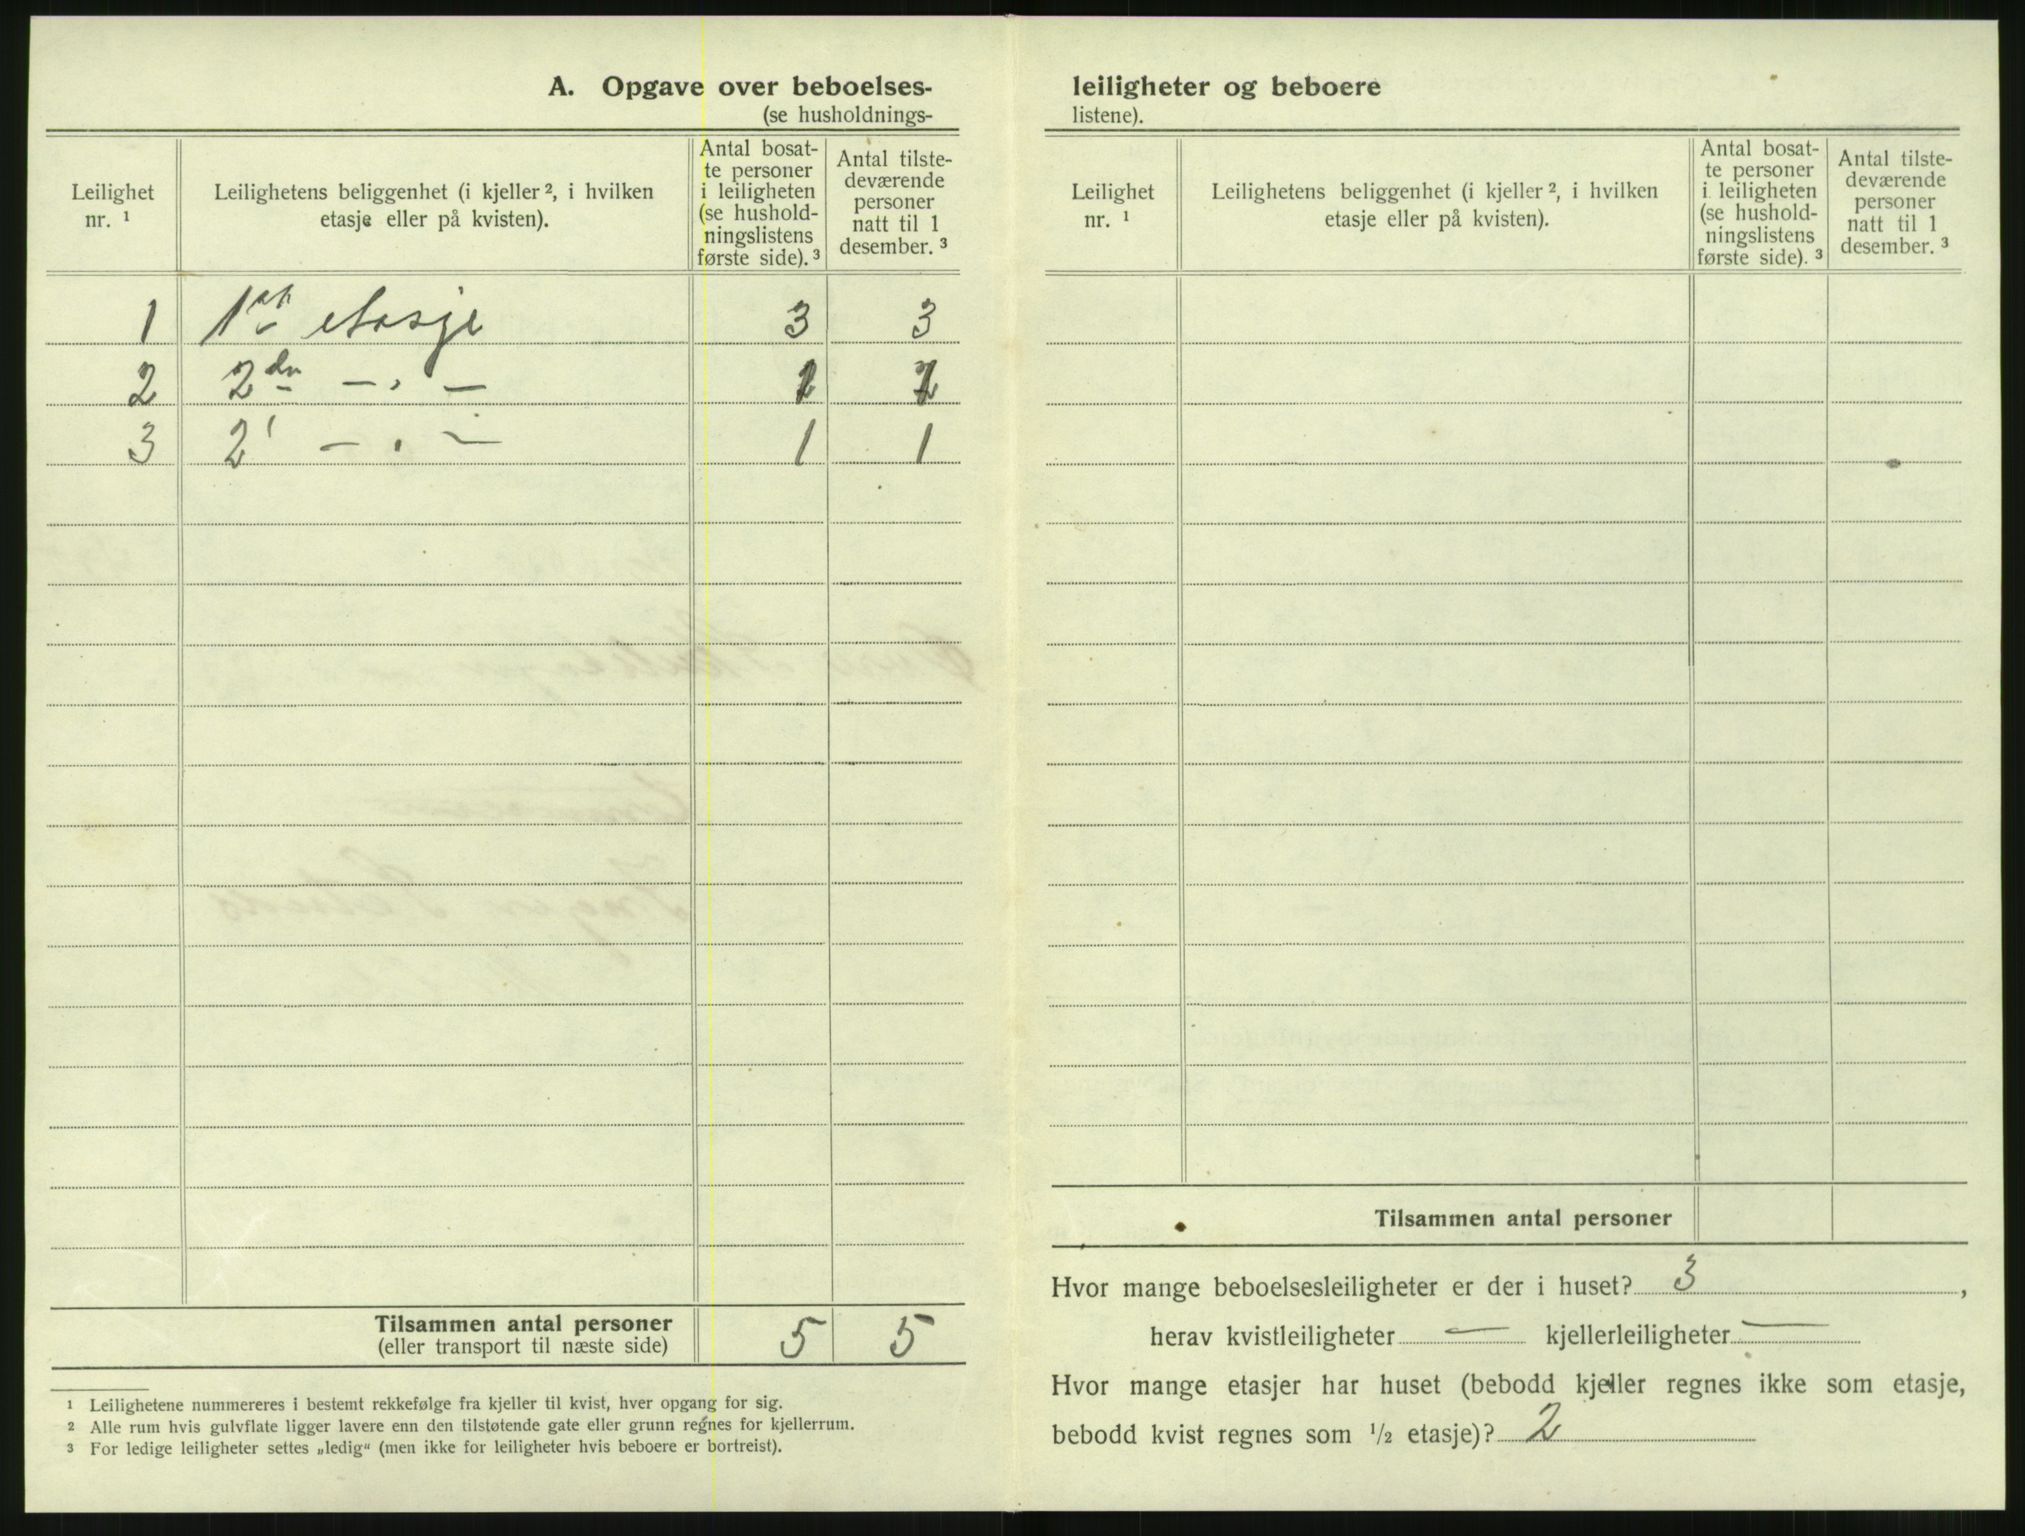 A. Opgave over beboelses-leiligheter og beboere
(se husholdnings-listene).
Leilighet nr. ¹
Leilighetens beliggenhet (i kjeller ², i hvilken etasje eller på kvisten).
Antal bosat-te personer i leiligheten (se hushold-ningslistens første side). ³
Antal tilste-deværende personer natt til 1 desember. ³
Leilighet nr. ¹
Leilighetens beliggenhet (i kjeller ², i hvilken etasje eller på kvisten).
Antal bosat-te personer i leiligheten (se hushold-ningslistens første side). ³
Antal tilste-deværende personer natt til 1 desember. ³
1 1ste etasje 3 3
2 2den — " — 1 1
3 2' — " — 1 1
Tilsammen antal personer 5 5
(eller transport til næste side)
¹ Leilighetene nummereres i bestemt rekkefølge fra kjeller til kvist, hver opgang for sig.
² Alle rum hvis gulvflate ligger lavere enn den tilstøtende gate eller grunn regnes for kjellerrum.
³ For ledige leiligheter settes „ledig“ (men ikke for leiligheter hvis beboere er bortreist).
Tilsammen antal personer
Hvor mange beboelsesleiligheter er der i huset? 3 ,
herav kvistleiligheter — kjellerleiligheter —
Hvor mange etasjer har huset (bebodd kjeller regnes ikke som etasje,
bebodd kvist regnes som ½ etasje)? 2